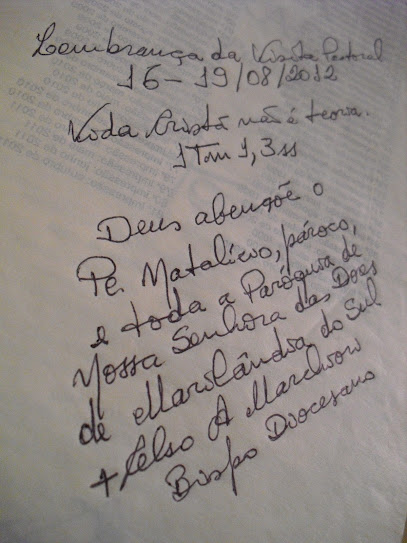 Lembrança da Visita Pastoral
16 – 19/08/2012
Vida Cristã não é teoria.
1Tm 1,3ss
Deus abençõe o
Pe. Natalício, pároco,
e toda a Paróquia de
Nossa Senhora das Dores
de Marilândia do Sul
+ Celso A Marchiori
Bispo Diocesano